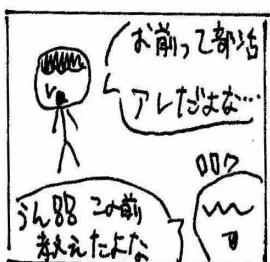 お前って部活
アレだよな…
うん 88 この前
教えたよな